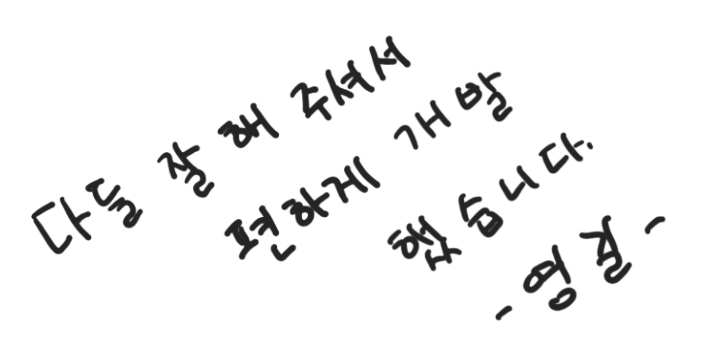 다들 잘 해 주셔서
편하게 개발
했습니다.
- 영길 -